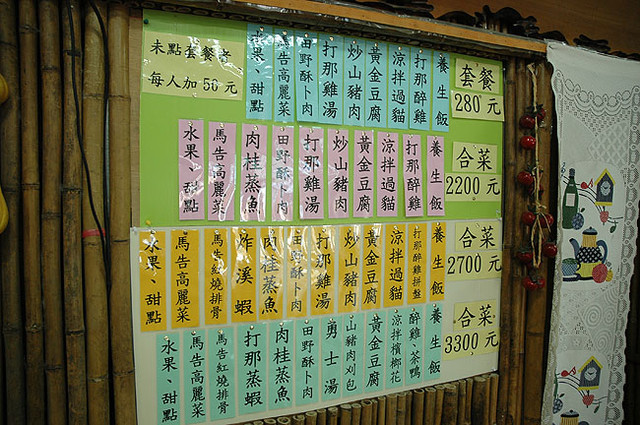 套餐
280元
養生飯
打那醉雞
涼拌過貓
黃金豆腐
炒山豬肉
打那雞湯
田野酥卜肉
馬告高麗菜
水果、甜點
未點套餐者
每人加50元
合菜
2200元
養生飯
打那醉雞
涼拌過貓
黃金豆腐
炒山豬肉
打那雞湯
田野酥卜肉
肉桂蒸魚
馬告高麗菜
水果、甜點
合菜
2700元
養生飯
打那醉雞拼盤
涼拌過貓
黃金豆腐
炒山豬肉
打那雞湯
田野酥卜肉
肉桂蒸魚
炸溪蝦
馬告紅燒排骨
馬告高麗菜
水果、甜點
合菜
3300元
養生飯
醉雞、茶鴨
涼拌檳榔花
黃金豆腐
山豬肉刈包
勇士湯
田野酥卜肉
肉桂蒸魚
打那蒸蝦
馬告紅燒排骨
馬告高麗菜
水果、甜點